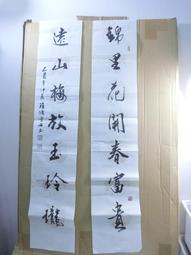 錦里花開春富貴
遠山梅放玉玲瓏